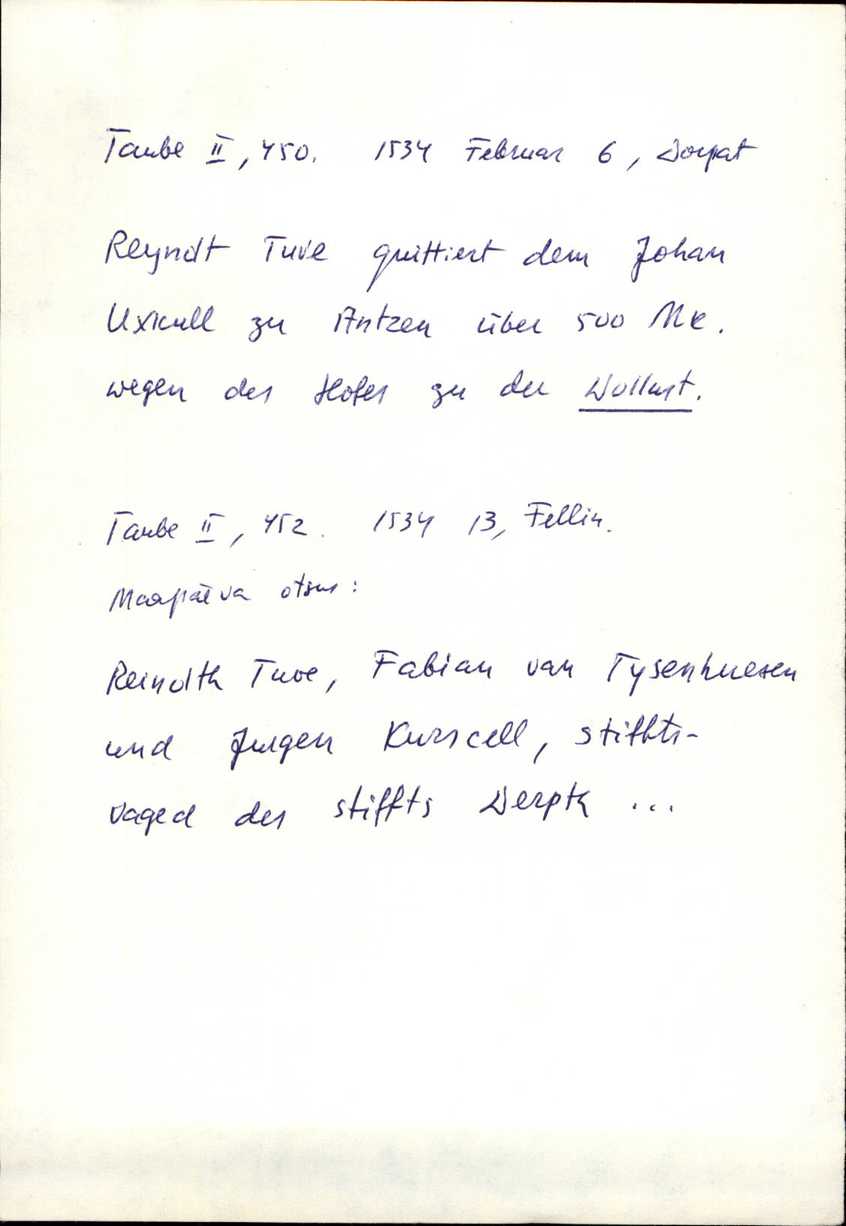 Taube II, 450. 1534 Februar 6, Dorpat
Reyndt Tuve quittiert dem Johan
Uxkull zu Antzen über 500 Mk.
wegen des Hofes zu der Wollust.
Taube II, 452. 1534 13, Fellin.
Maapäeva otsus:
Reindth Tuve, Fabian van Tysenhuesen
und Jurgen Kurscell, stiffts-
vaged des stiffts Derpth ...